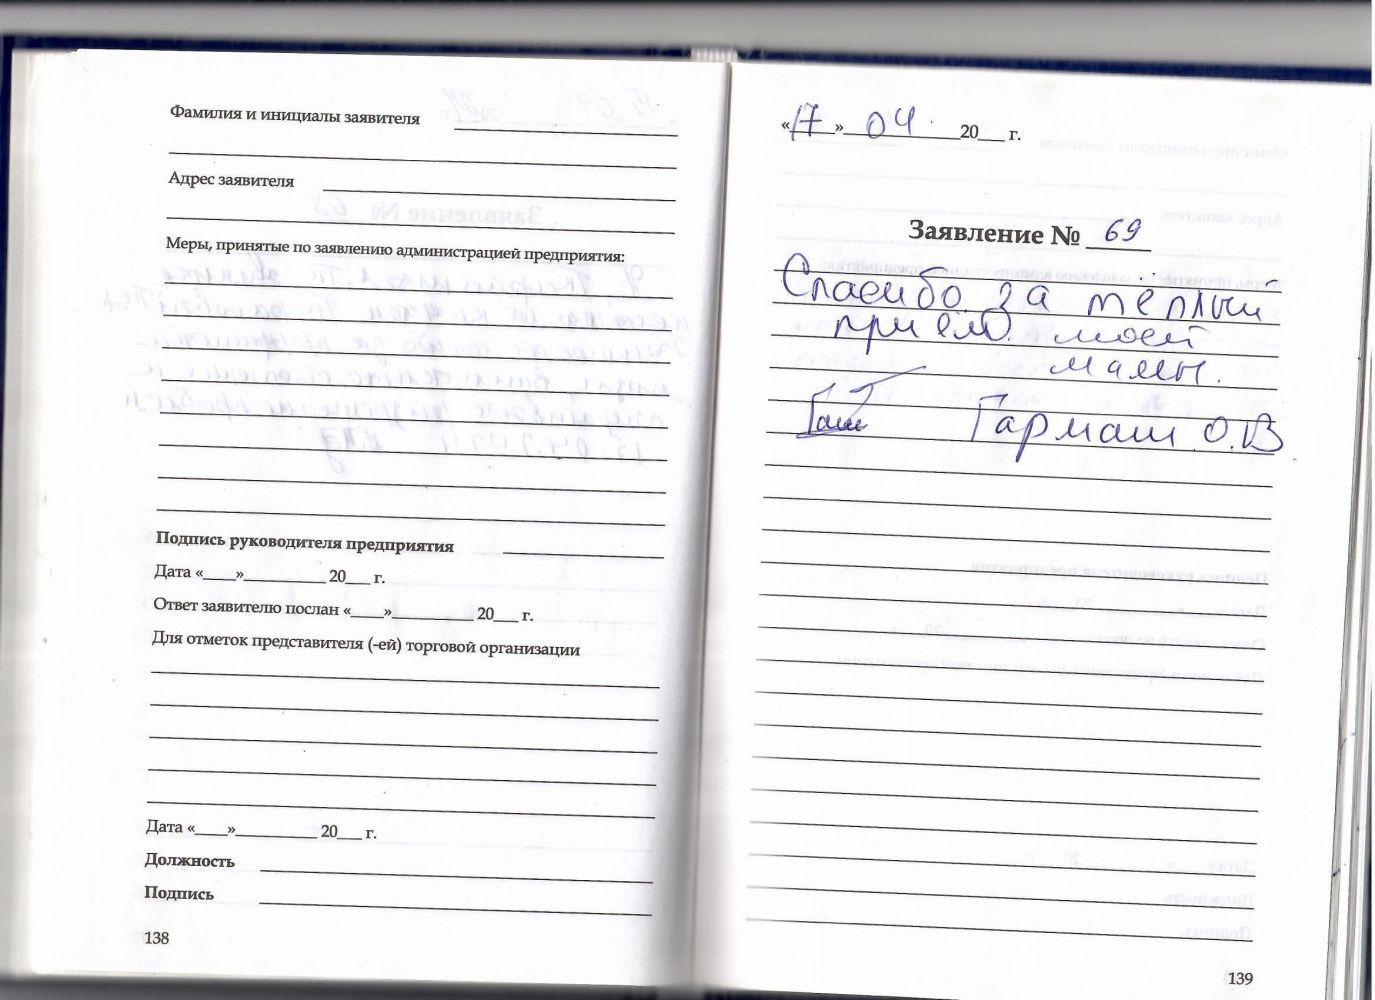 Фамилия и инициалы заявителя
Адрес заявителя
Меры, принятые по заявлению администрацией предприятия:
Подпись руководителя предприятия
Дата «____»__________ 20___ г.
Ответ заявителю послан «____»__________ 20___ г.
Для отметок представителя (-ей) торговой организации
Дата «____»__________ 20___ г.
Должность
Подпись
138
«17» 04 20___ г.
Заявление № 69
Спасибо за тёплый
приём моей
мамы.
Гармаш О.В.
139